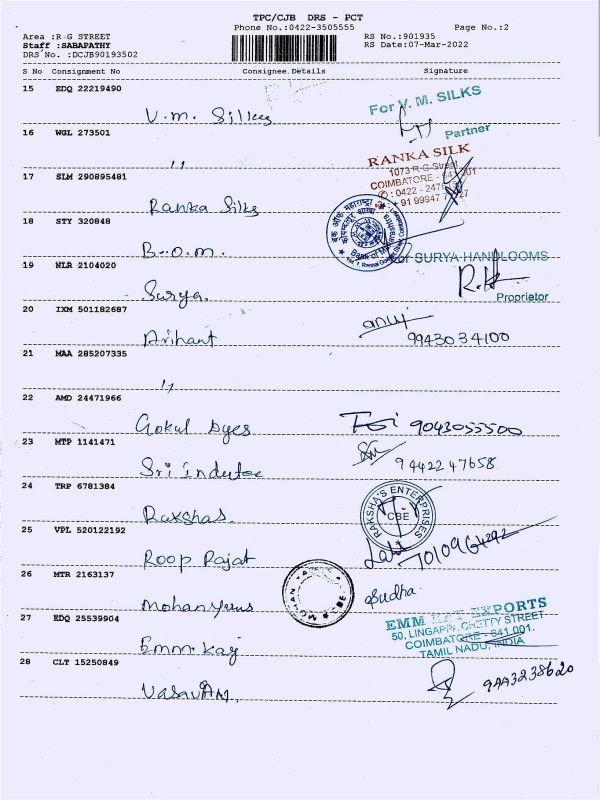 TPC/CJB DRS - PCT
Phone No.:0422-3505555
Page No.:2
Area :R G STREET
Staff :SABAPATHY
DRS No. :DCJB90193502
RS No.:901935
RS Date:07-Mar-2022
S No Consignment No Consignee Details Signature
15 EDQ 22219490
V.M. Silks
For V. M. SILKS
Partner
16 WGL 273501
"
RANKA SILK
1073 R G Street
COIMBATORE - 641 001
17 SLM 290895481
Ranka Silks
18 STY 320848
B.O.M.
For SURYA HANDLOOMS
19 NLR 2104020
Surya.
Proprietor
20 IXM 501182687
Arihant
anuj
9943034100
21 MAA 285207335
"
22 AMD 24471966
Gokul Dyes
9043055500
23 MTP 1141471
9442247658
24 TRP 6781384
Rakshas.
RAKSHA'S ENTERPRISES
CBE
25 VPL 520122192
Roop Rajat
26 MTR 2163137
Sudha
27 EDQ 25539904
EXPORTS
50, LINGAPPA CHETTY STREET
COIMBATORE - 641 001.
TAMIL NADU, INDIA
28 CLT 15250849
9443238620